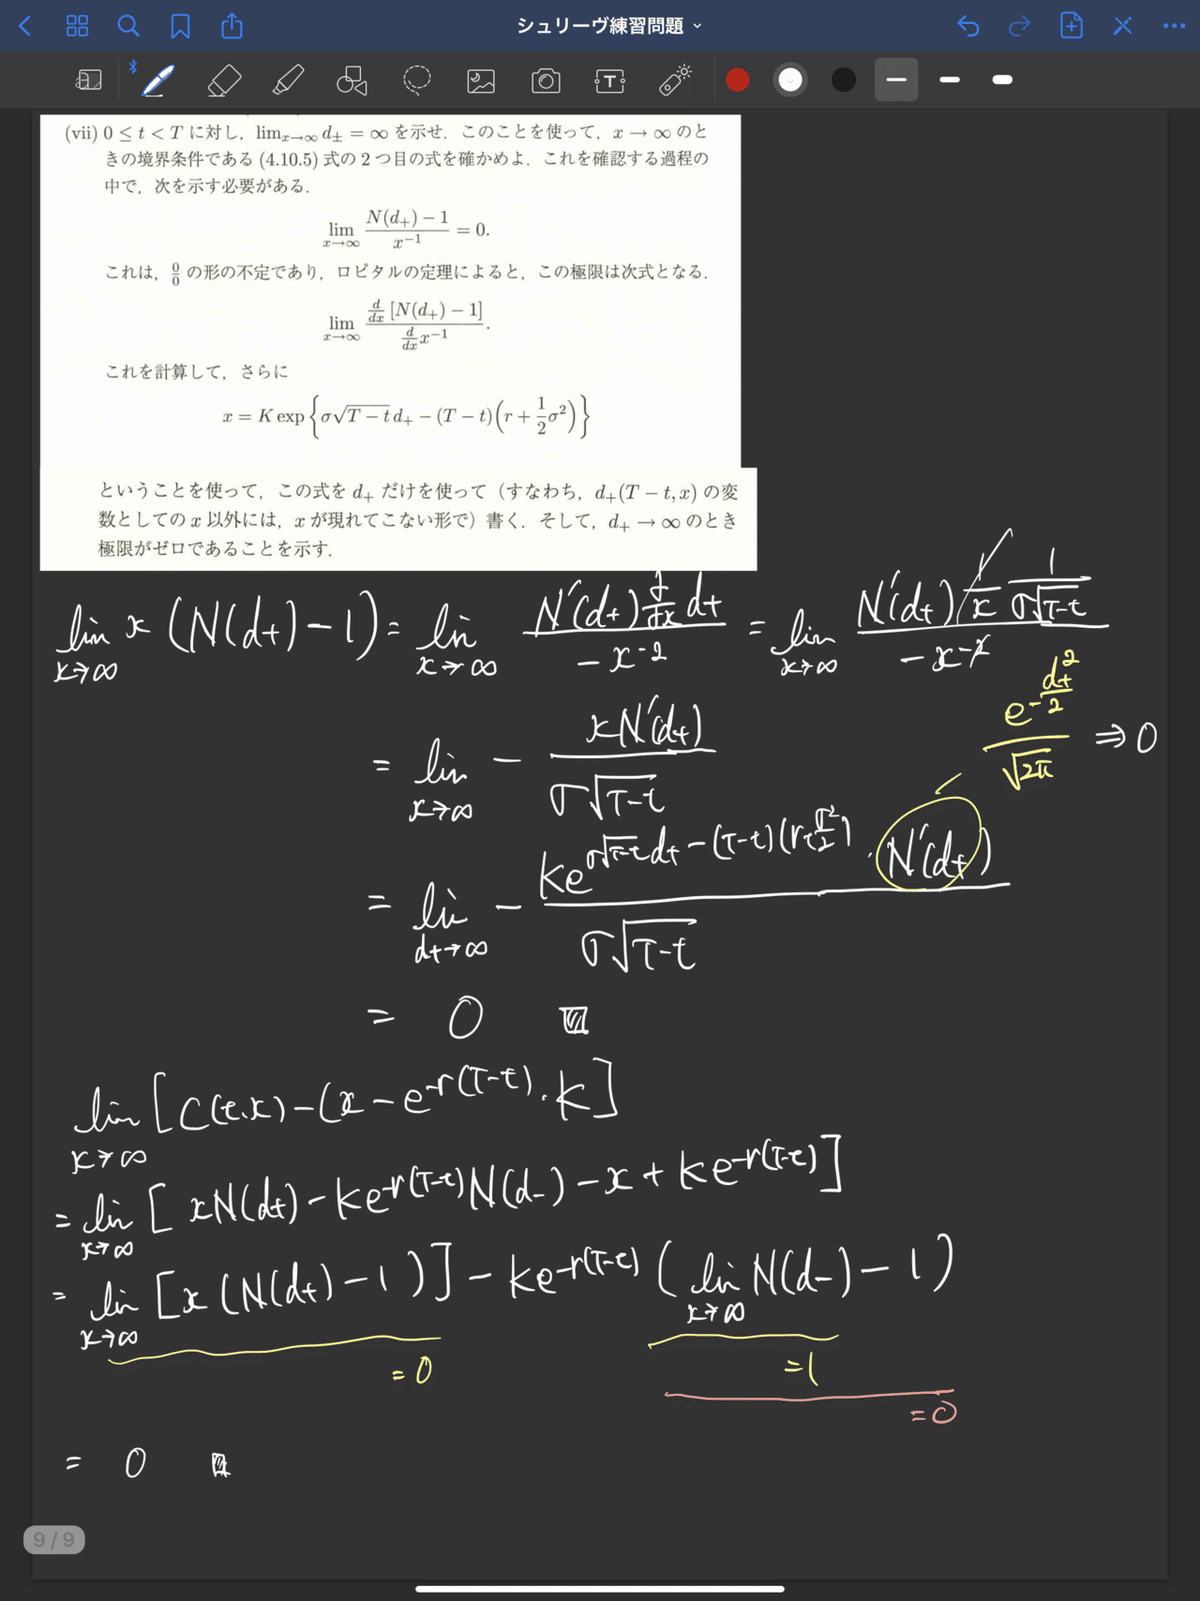 シュリーヴ練習問題
(vii) 0 ≤ t < T に対し, lim_{x→∞} d± = ∞ を示せ. このことを使って, x → ∞ のと
きの境界条件である (4.10.5) 式の 2 つ目の式を確かめよ. これを確認する過程の
中で, 次を示す必要がある.
lim_{x→∞} (N(d₊) − 1)/(x⁻¹) = 0.
これは, 0/0 の形の不定であり, ロピタルの定理によると, この極限は次式となる.
lim_{x→∞} (d/dx [N(d₊) − 1])/(d/dx x⁻¹).
これを計算して, さらに
x = K exp{σ√(T − t) d₊ − (T − t)(r + 1/2 σ²)}
ということを使って, この式を d₊ だけを使って (すなわち, d₊(T − t, x) の変
数としての x 以外には, x が現れてこない形で) 書く. そして, d₊ → ∞ のとき
極限がゼロであることを示す.
lim_{x→∞} x (N(d₊) − 1) = lim_{x→∞} (N'(d₊) d/dx d₊)/(−x⁻²) = lim_{x→∞} (N'(d₊) 1/x 1/(σ√(T−t)))/(−x⁻²)
= lim_{x→∞} − (x N'(d₊))/(σ√(T−t))
e^{−d₊²/2}/√2π ⇒ 0
= lim_{d₊→∞} − (K e^{σ√(T−t) d₊ − (T−t)(r+σ²/2)} · N'(d₊))/(σ√(T−t))
= 0
lim_{x→∞} [C(t,x) − (x − e^{−r(T−t)} · K]
= lim_{x→∞} [xN(d₊) − Ke^{−r(T−t)} N(d₋) − x + Ke^{−r(T−t)}]
= lim_{x→∞} [x (N(d₊) − 1)] − Ke^{−r(T−t)} (lim_{x→∞} N(d₋) − 1)
= 0 = 1
= 0
= 0
9 / 9